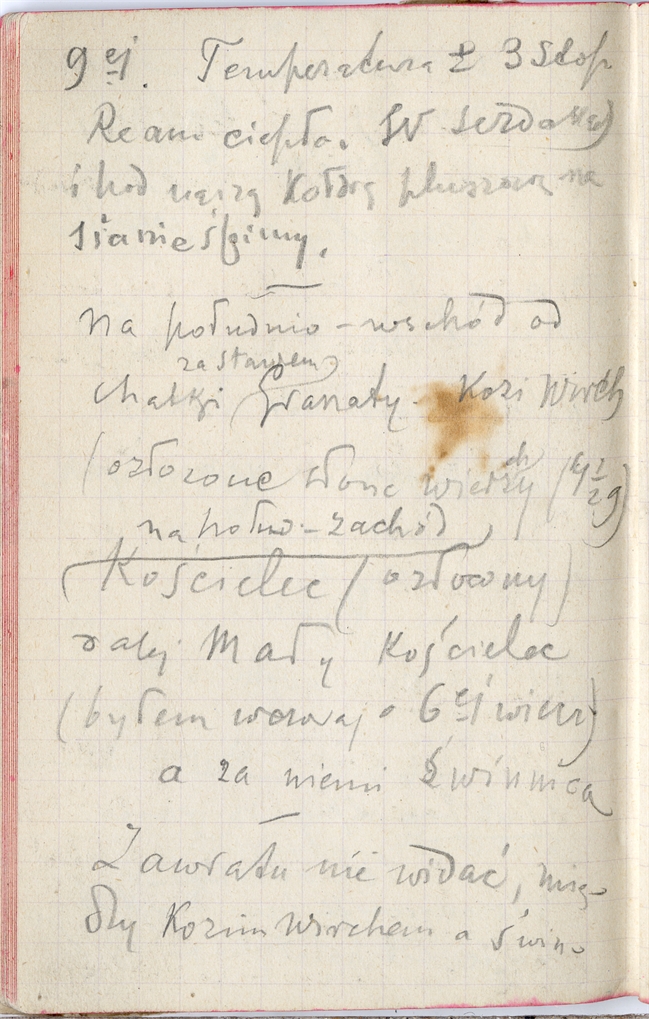 9ej. Temperatura ± 3 stop
Ream ciepła. W serda
i pod kołdrą pluszową na
sianie śpimy.
na południo-wschód od
za stawem
chatki Granaty. Kozi Wirch
(ozłocone słońc wierzch (4 1/2 g)
na połno-zachód
Kościelec (ozłocony)
dalej Mały Kościelec
(byłem wczoraj o 6ej wiecz)
a za niemi Świnnica
Zawratu nie widać, mię-
dzy Kozim Wirchem a Świn-